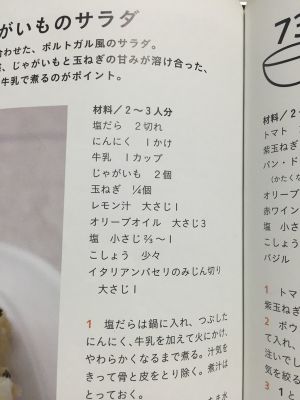 がいものサラダ
合わせた、ポルトガル風のサラダ。
、じゃがいもと玉ねぎの甘みが溶け合った、
牛乳で煮るのがポイント。
材料/2〜3人分
塩だら 2切れ
にんにく 1かけ
牛乳 1カップ
じゃがいも 2個
玉ねぎ 1/4個
レモン汁 大さじ1
オリーブオイル 大さじ3
塩 小さじ2/3〜1
こしょう 少々
イタリアンパセリのみじん切り
大さじ1
1 塩だらは鍋に入れ、つぶした
にんにく、牛乳を加えて火にかけ、
やわらかくなるまで煮る。汁気を
きって骨と皮をとり除く。煮汁は
とっておく。
73
材料/2〜
トマト
紫玉ねぎ
パン・ド
(かたくな
オリーブ
赤ワイン
塩 小さ
こしょう
バジル
1 トマト
紫玉ねぎ
2 ボウ
て入れ、
注いでし
気を絞る
3 1と